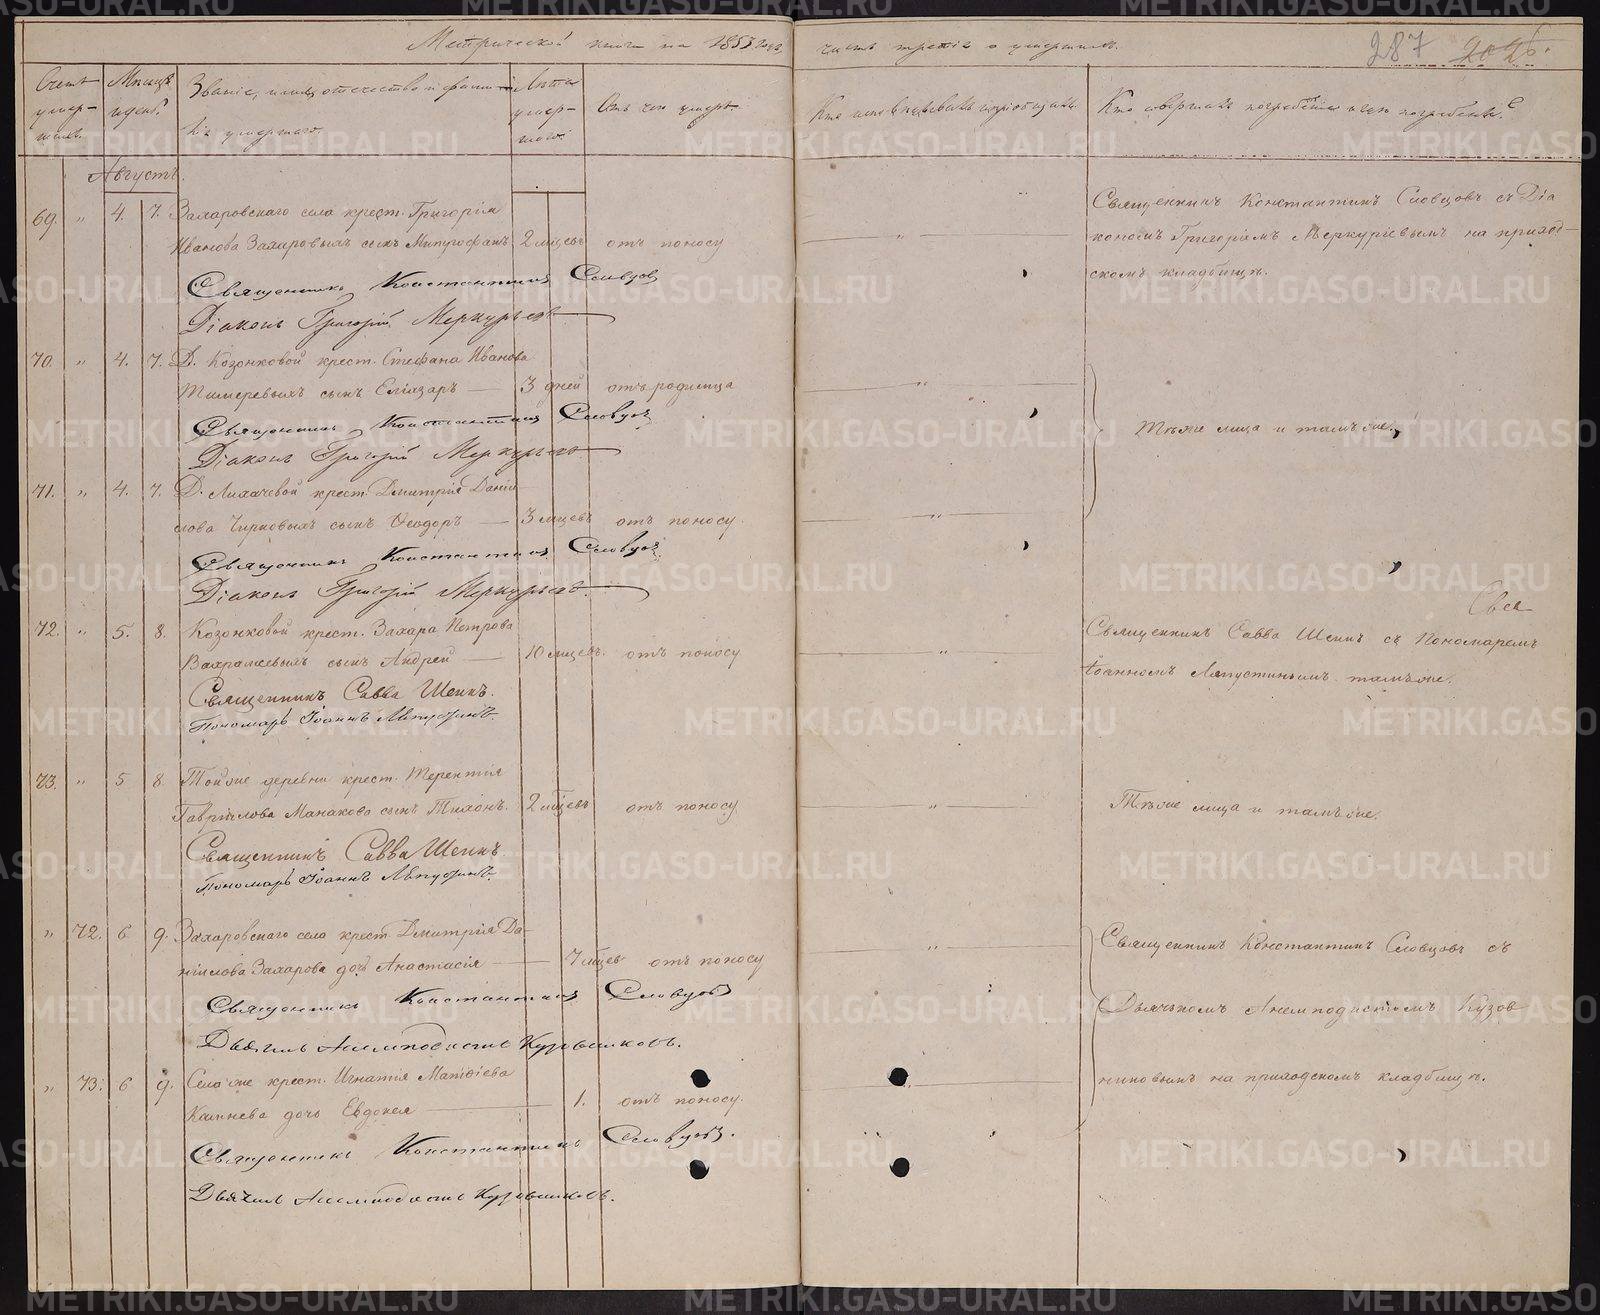 Метрической книги на 1853 годъ часть третія о умершихъ.
287
Счетъ умер-шихъ.
Мѣсяцъ и день.
Званіе, имя, отечество и фамилія умершаго.
Лѣта умер-шаго.
Отъ чего умеръ
Кто исповѣдывалъ и пріобщалъ.
Кто совершалъ погребеніе и гдѣ погребены?
Августъ.
69. " 4. 7. Захаровскаго села крест. Григорія
Иванова Захаровыхъ сынъ Митрофанъ 2 мцевъ отъ поносу
Священникъ Константинъ Словцовъ съ Діа
кономъ Григоріемъ Меркуріевымъ на приход-
скомъ кладбищѣ.
Священникъ Константинъ Словцовъ
Діаконъ Григорій Меркурьевъ
70. " 4. 7. Д. Козонковой крест. Стефана Иванова
Тимеревыхъ сынъ Еліазаръ — 3 дней отъ родимца
Тѣже лица и тамъ же.
Священникъ Константинъ Словцовъ
Діаконъ Григорій Меркурьевъ
71. " 4. 7. Д. Лихачевой крест. Дмитрія Даніи-
лова Чирковыхъ сынъ Ѳеодоръ — 3 мцевъ отъ поносу.
Священникъ Константинъ Словцовъ
Діаконъ Григорій Меркурьевъ.
72. " 5. 8. Козонковой крест. Захара Петрова
Вахрамевыхъ сынъ Андрей — 10 мцевъ. отъ поносу
Священникъ Савва Шеинъ съ Пономаремъ
Іоанномъ Ляпустинымъ тамъ же.
Священникъ Савва Шеинъ.
Пономарь Іоаннъ Ляпустинъ.
73. " 5 8 Той же деревни крест. Терентія
Гавріилова Манакова сынъ Тихонъ. 2 мцевъ отъ поносу.
Тѣже лица и тамъ же.
Священникъ Савва Шеинъ
Пономарь Іоаннъ Ляпустинъ.
" 72. 6 9. Захаровскаго села крест. Дмитрія Да-
ніилова Захарова дочь Анастасія — 7 мцев отъ поносу
Священникъ Константинъ Словцовъ съ
Дьячкомъ Анемподистомъ Кузов
никовымъ на приходскомъ кладбищѣ.
Священникъ Константинъ Словцовъ
Дьячекъ Анемподистъ Кузовниковъ.
" 73. 6 9. Села же крест. Игнатія Матѳіева
дочь Евдокея — 1. отъ поносу.
Священникъ Константинъ Словцовъ.
Дьячекъ Анемподистъ Кузовниковъ.
METRIKI.GASO-URAL.RU